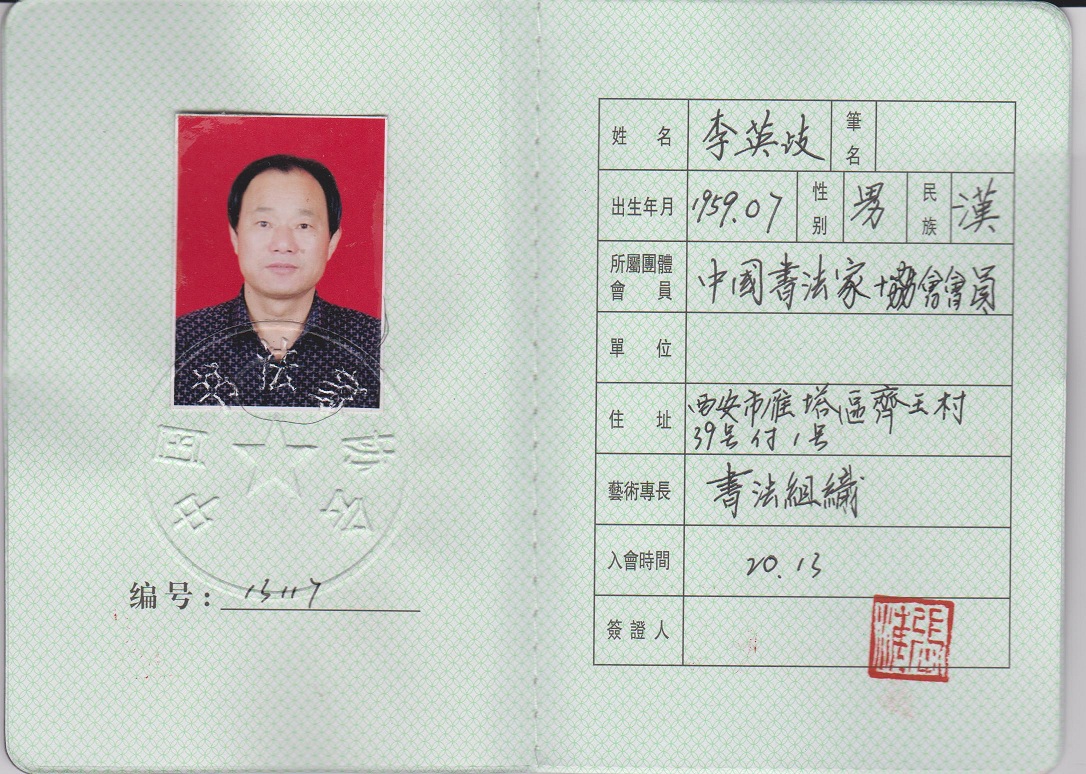 中国书法家协会
编号：13117
姓名 李英歧 筆名
出生年月 1959.07 性别 男 民族 漢
所屬團體會員 中國書法家協會會員
單位
住址 西安市雁塔區齊王村
39号付1号
藝術專長 書法組織
入會時間 2013
簽證人